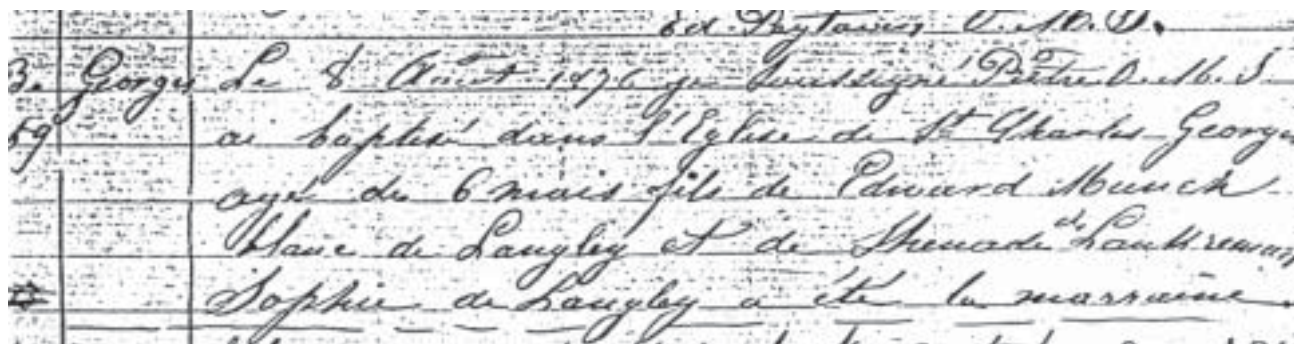 Ed. Peytavin O. M. I.
B. Georges Le 8 Août 1876 je soussigné Prêtre O. M. I.
59 ai baptisé dans l'Eglise de St Charles Georges
agé de 6 mois fils de Edward Munich
blanc de Langley et de de
Sophie de Langley a été la marraine.